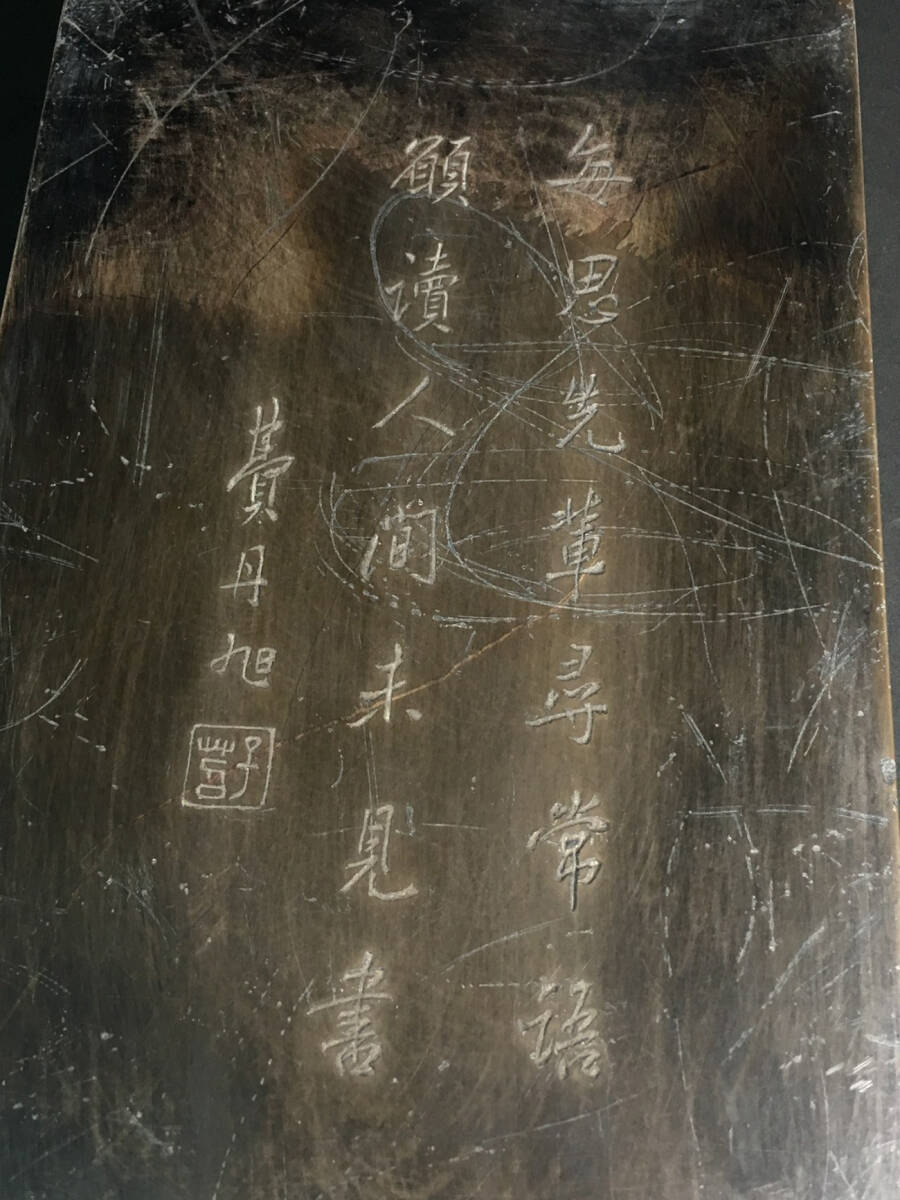 每思先輩尋常語
願讀人間未見書
費丹旭
子苕